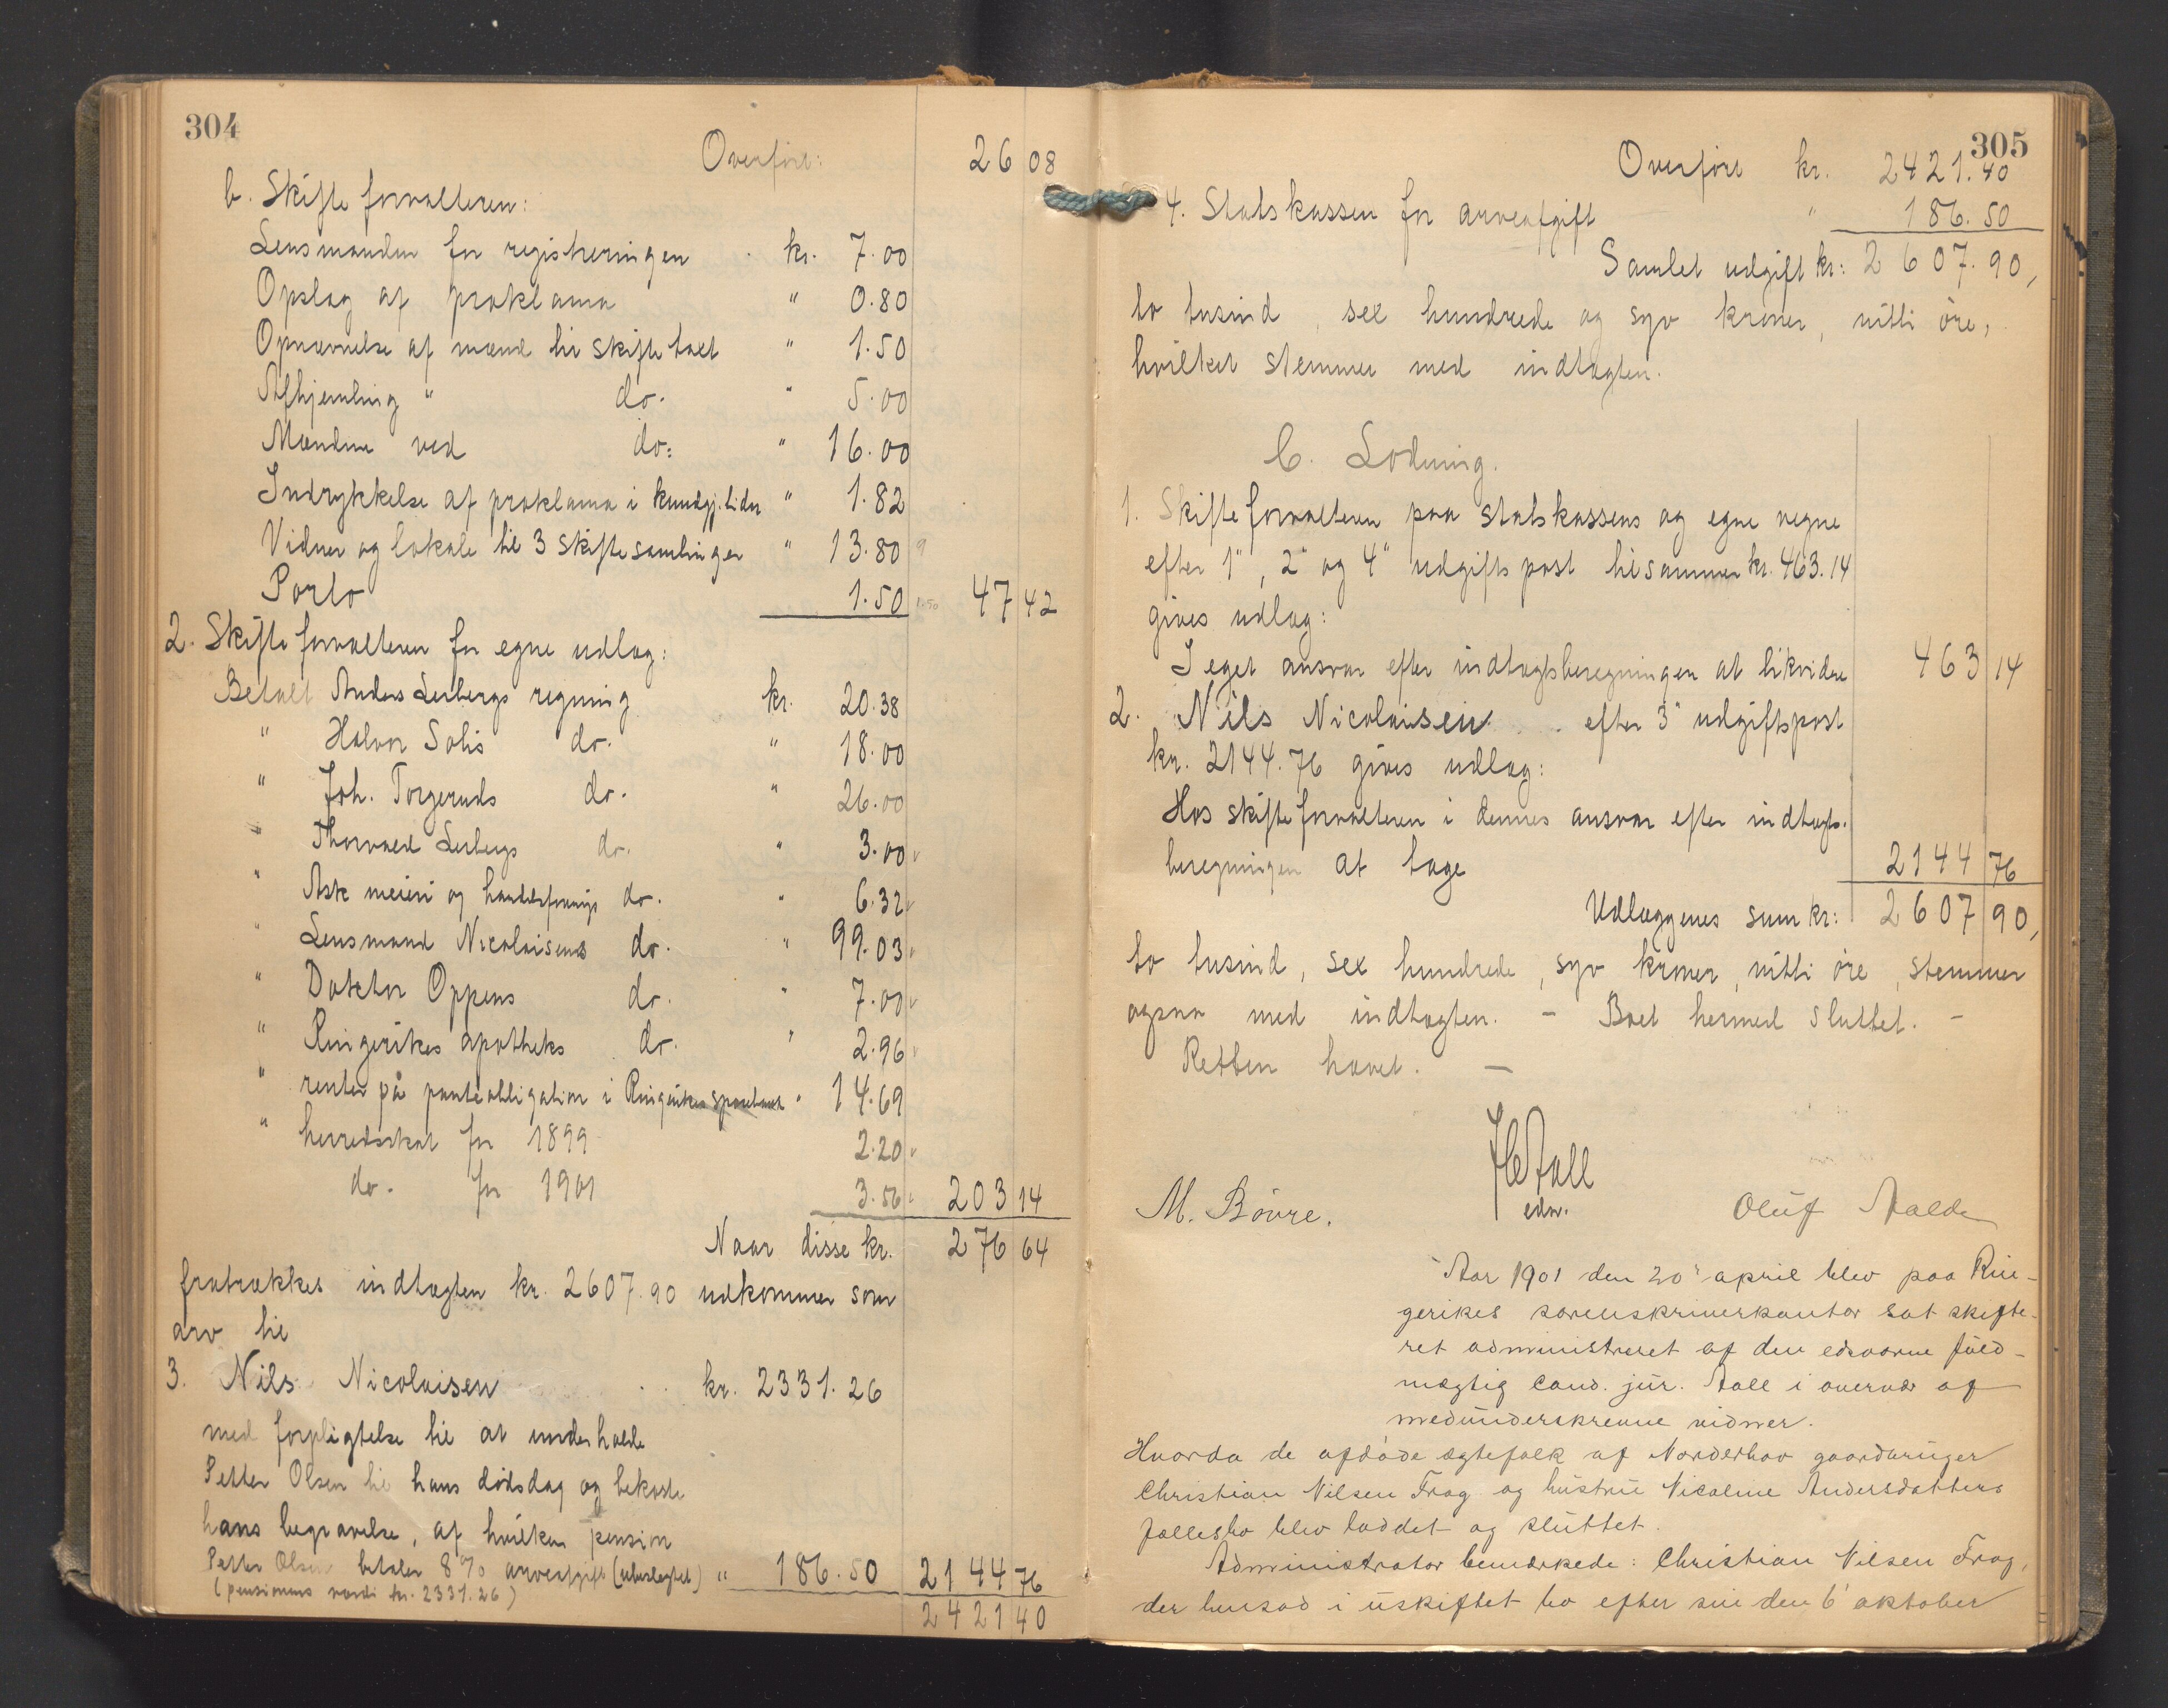 304
Overført: 26 08
b. Skifteforvalteren:
Lensmanden for registreringen kr. 7.00
Opslag af proklama " 0.80
Opnævnelse af mænd til skiftetaxt " 1.50
Afhjemling " do. " 5.00
Mændene ved do: " 16.00
Indrykkelse af proklama i kundgj.tider " 1.82
Vidner og lokale til 3 skiftesamlinger " 13.80
Porto 1.50 47 42
2. Skifteforvalteren for egne udlæg:
Betalt Anders Lerbergs regning kr. 20.38
" Halvor Solis do. " 18.00
" Joh. Torgeruds do. " 26.00
" Thorvald Lerbergs do. " 3.00
" Ask meieri og handelsforenings do. " 6.32
" Lensmand Nicolaisens do. " 99.03
" Doktor Oppens do. " 7.00
" Ringerikes apotheks do. " 2.96
" renter på panteobligation i Ringerikes sparebank " 14.69
" herredsskat for 1899 2.20
do. for 1901 3.56 203 14
Naar disse kr. 276 64
fratrækkes indtægten kr. 2607.90 udkommer som
arv til
3. Nils Nicolaisen kr. 2331.26
med forpligtelse til at underholde
Petter Olsen til hans dødsdag og bekoste
hans begravelse, af hvilken pension
Petter Olsen betaler 8% arveafgift (ubeslægtet) " 186.50 2144 76
(pensionens værdi kr. 2331.26)
2421 40
305
Overført kr. 2421.40
4. Statskassen for arveafgift " 186.50
Samlet udgift kr: 2607.90,
to tusind, sex hundrede og syv kroner, nitti øre,
hvilket stemmer med indtægten.
C. Lodning.
1. Skifteforvalteren paa statskassens og egne vegne
efter 1", 2" og 4" udgiftspost tilsammen kr. 463.14
gives udlæg:
I eget ansvar efter indtægtsberegningen at likvidere 463 14
2. Nils Nicolaisen efter 3" udgiftspost
kr. 2144.76 gives udlæg:
Hos skifteforvalteren i dennes ansvar efter indtægts-
beregningen at tage 2144 76
Udlæggenes sum kr: 2607 90,
to tusind, sex hundrede, syv kroner, nitti øre, stemmer
ogsaa med indtægten. – Boet hermed sluttet. –
Retten hævet. –
Aall
edsv.
M. Bøvre. Oluf Aalde
Aar 1901 den 20' april blev paa Rin-
gerikes sorenskriverkontor sat skifte-
ret administreret af den edsvorne fuld-
mægtig cand. jur. Aall i overvær af
medunderskrevne vidner.
Hvorda de afdøde ægtefolk af Norderhov gaardbruger
Christian Nilsen Frog og hustru Nicoline Andersdatters
fællesbo blev loddet og sluttet.
Administrator bemærkede: Christian Nilsen Frog,
der hensad i uskiftet bo efter sin den 6' oktober